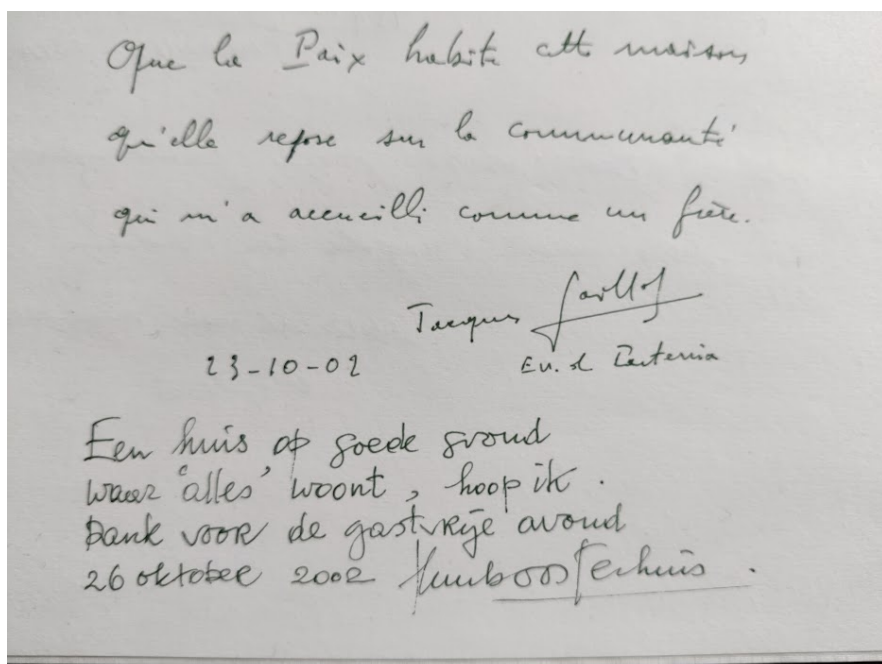 Que la Paix habite cette maison
qu'elle repose sur la communauté
qui m'a accueilli comme un frère.
Jacques Gaillot
23-10-02
Ev. de Partenia
Een huis op goede grond
waar 'alles' woont, hoop ik.
Dank voor de gastvrije avond
26 oktober 2002 Huub Oosterhuis.